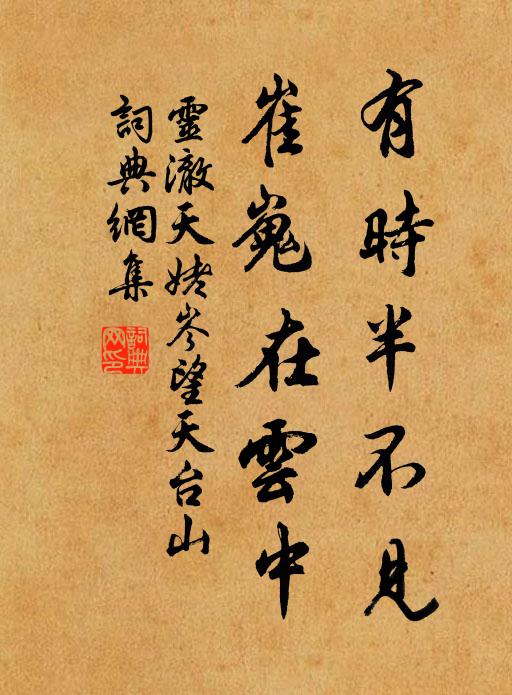 有時半不見
崔嵬在雲中
靈澈天姥岑望天台山
詞典網集
詞典網印